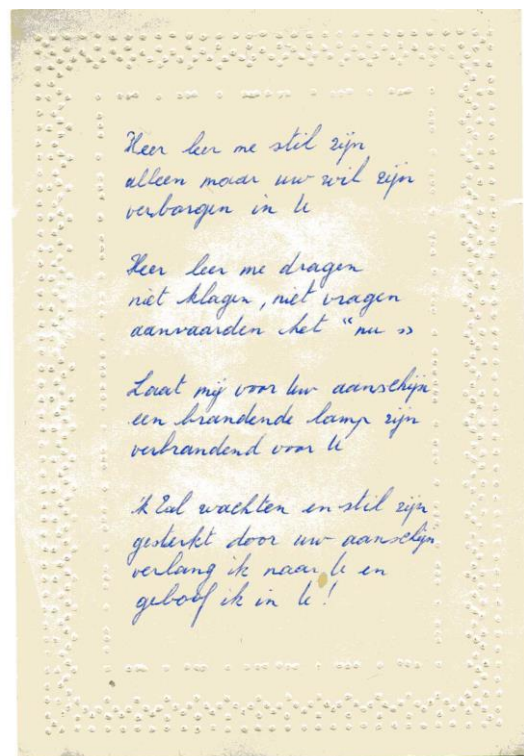 Heer leer me stil zijn
alleen maar uw wil zijn
verborgen in U
Heer leer me dragen
niet klagen, niet vragen
aanvaarden het "nu"
Laat mij voor Uw aanschijn
een brandende lamp zijn
verbrandend voor U
ik Zal wachten en stil zijn
gesterkt door uw aanschijn
verlang ik naar U en
geloof ik in U!